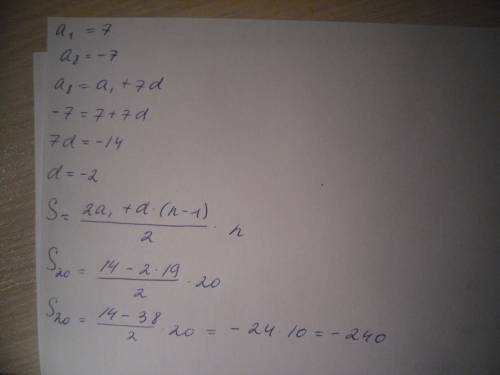 a₁ = 7
a₈ = -7
a₈ = a₁ + 7d
-7 = 7 + 7d
7d = -14
d = -2
S = (2a₁ + d · (n-1))/2 · n
S₂₀ = (14 - 2 · 19)/2 · 20
S₂₀ = (14 - 38)/2 · 20 = -24 · 10 = -240